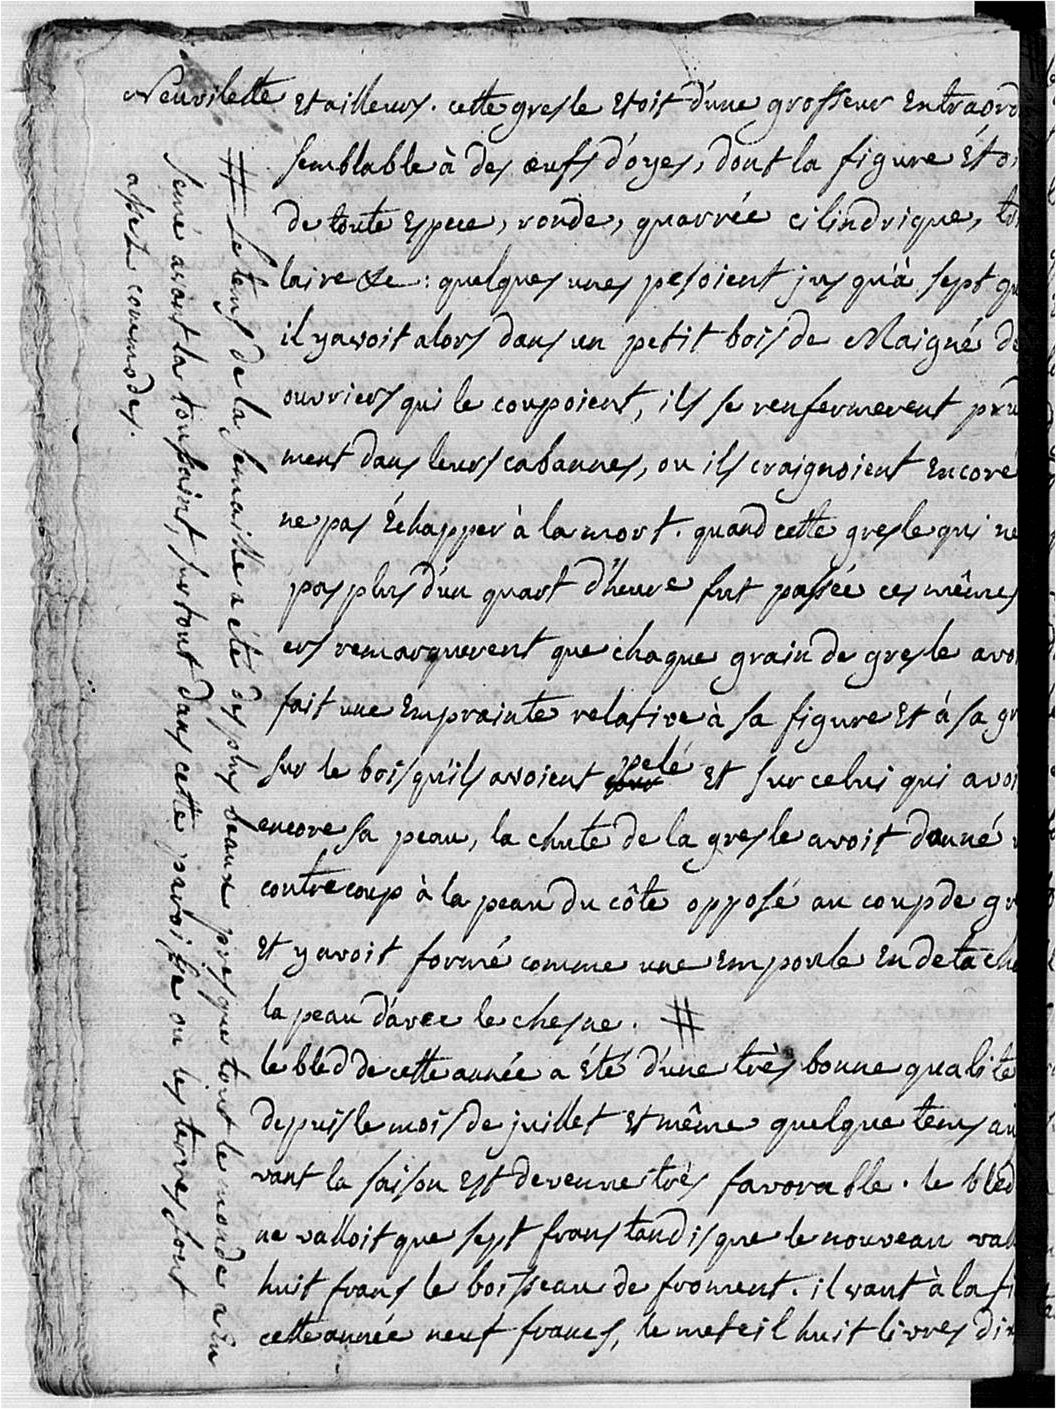 Neuvilette Et ailleurs. cette gresle Etoit d'une grosseur Extraord
semblable à des œufs d'oyes, dont la figure Éto
de toute Espece, ronde, quarrée cilindrique,
laire &c : quelques unes pesoient jusqu'à sept
il y avoit alors dans un petit bois de Maigné de
ouvriers qui le coupoient, ils se renfermerent pru
ment dans leurs cabannes, ou ils craignoient Encore
ne pas Échapper à la mort. quand cette gresle qui ne
pas plus d'un quart d'heure fut passée ces mêmes
ers remarquerent que chaque grain de gresle avo
fait une Emprainte relative à sa figure Et à sa gr
sur le bois qu'ils avoient pelé Et sur celui qui avoi
encore sa peau, la chute de la gresle avoit donné
contrecoup à la peau du côte opposé au coup de gr
Et y avoit formé comme une Empoule En detache
la peau d'avec le chesne. #
le bled de cette année a Été d'une très bonne qualite
depuis le mois de juillet Et même quelque tems au
vant la saison Est devenue très favorable. le bled
ne valloit que sept frans tandis que le nouveau val
huit frans le boisseau de froment. il vaut à la fi
cette année neuf francs, le meteil huit livres dix
# le tems de la semaille a été des plus beaux presque tout le monde a Eu
semé avant la toussaint, surtout dans cette paroisse ou les terres sont
assez commodes.